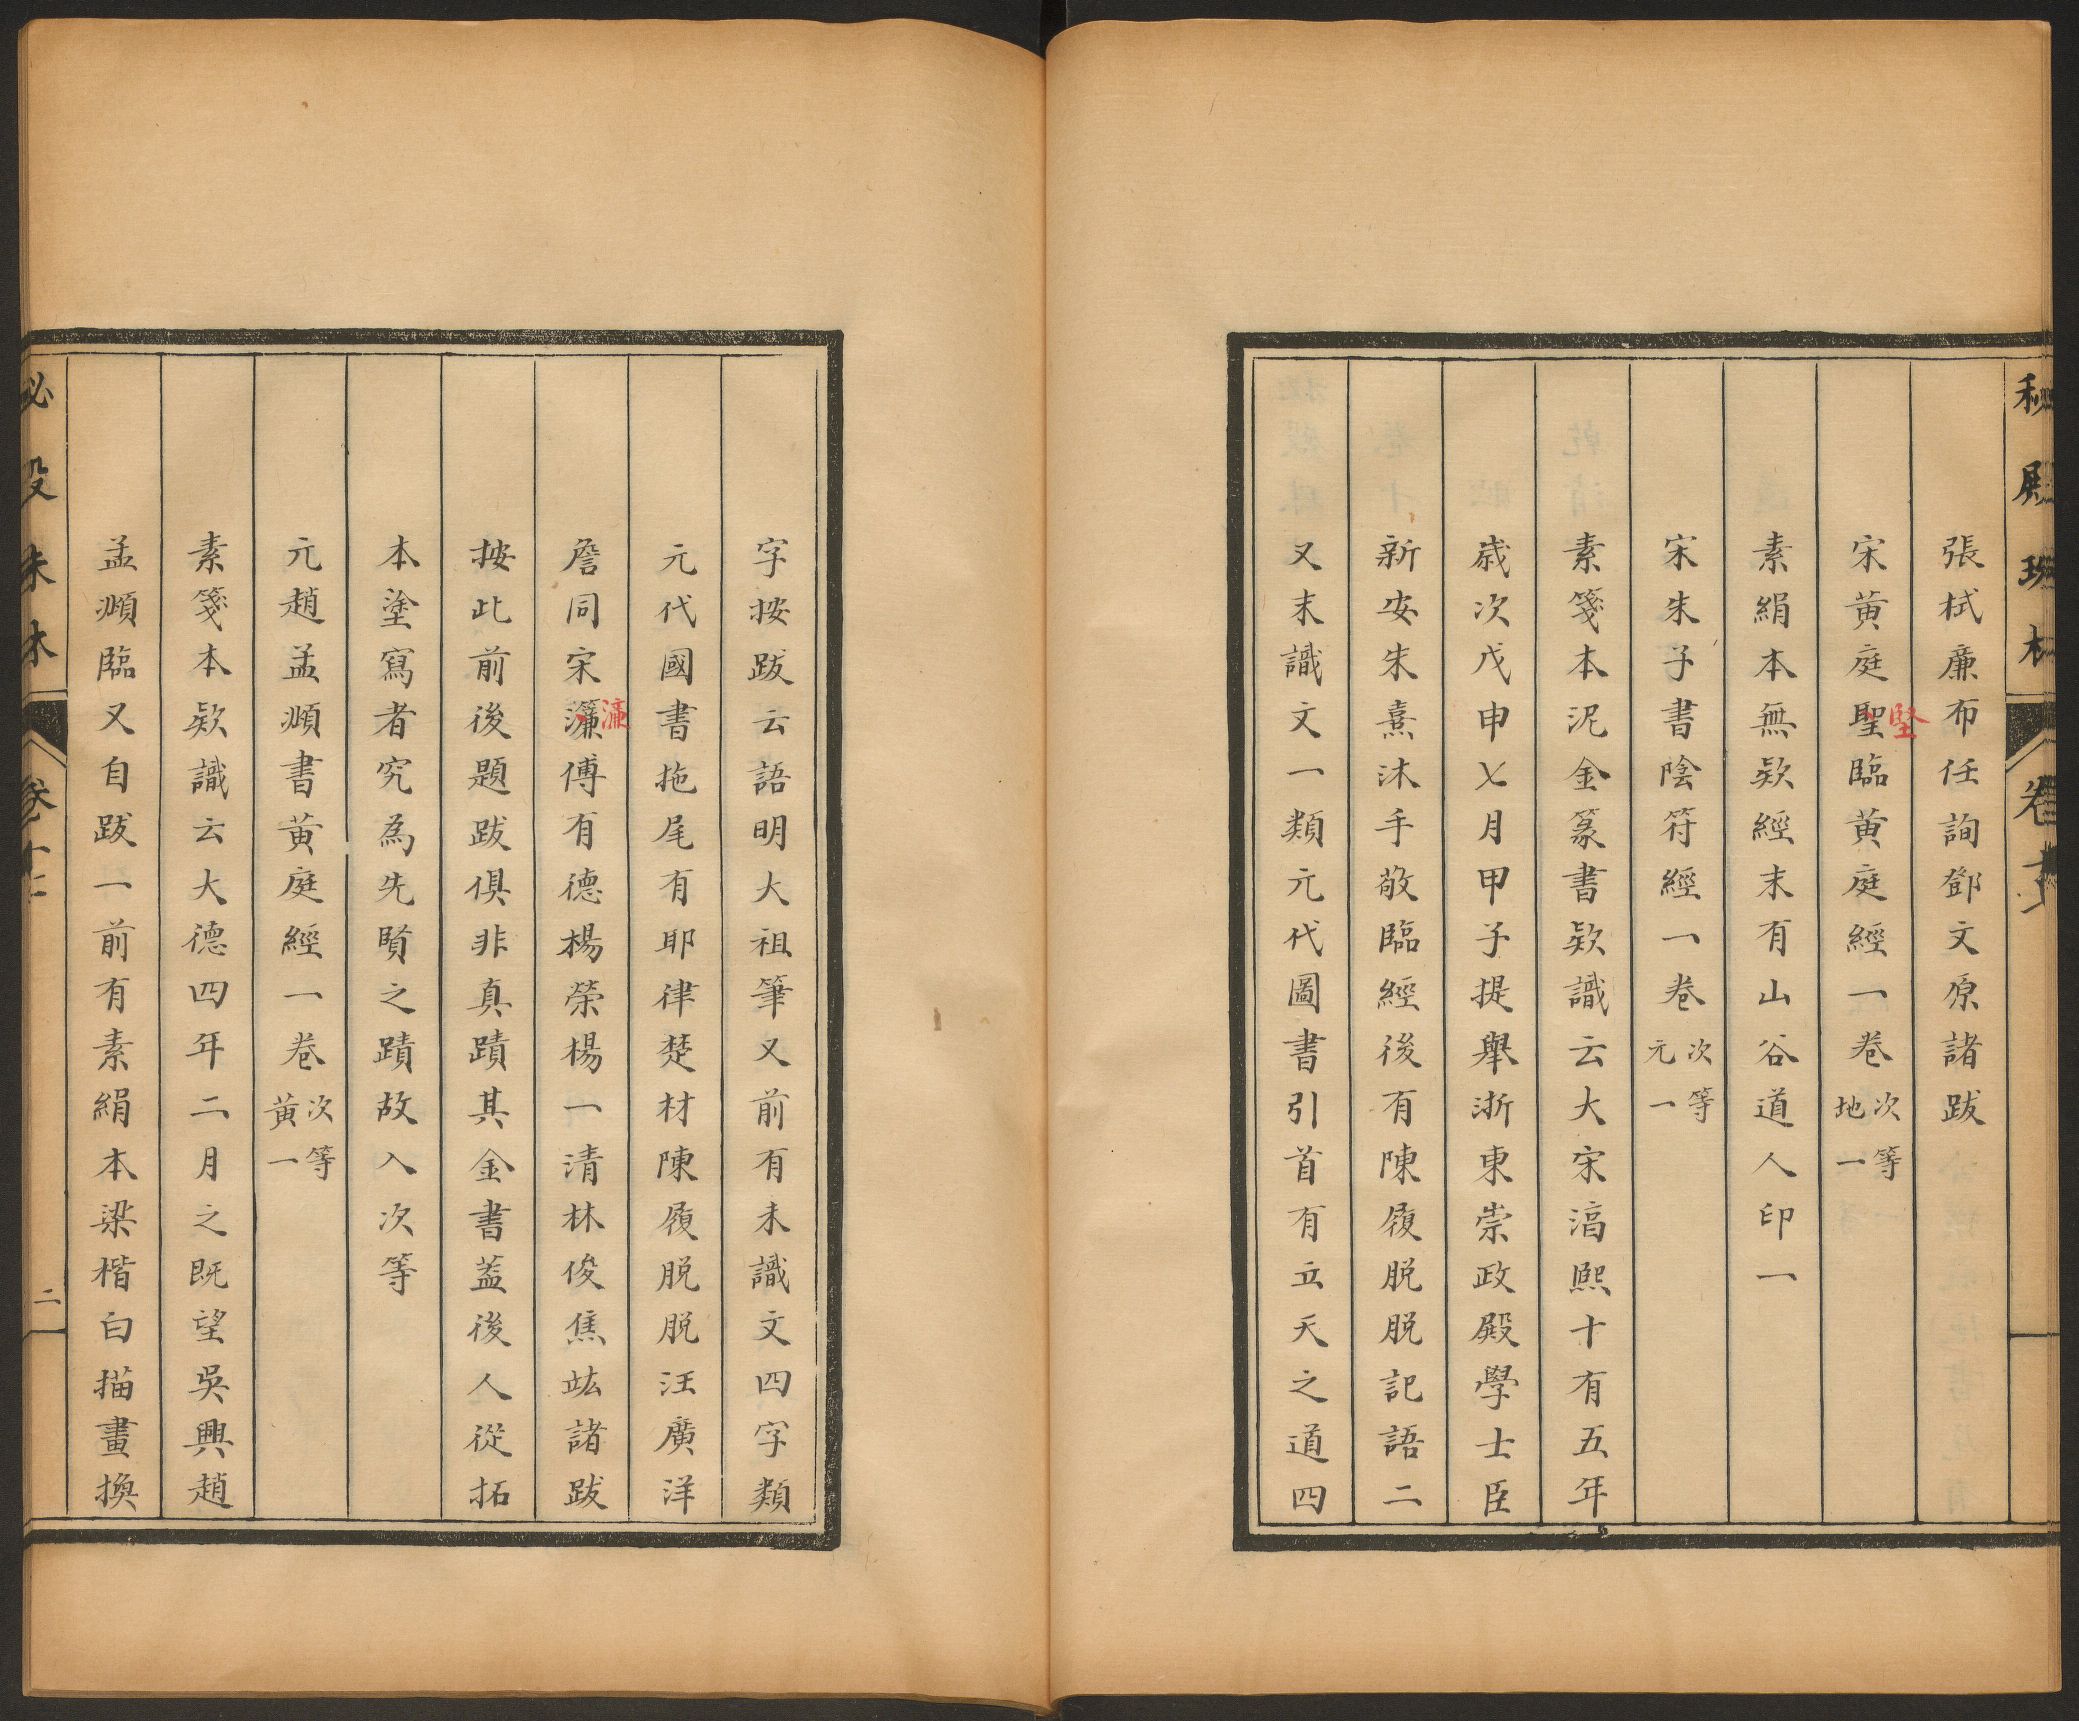 秘殿珠林 卷十六
張栻廉布任詢鄧文原諸跋
宋黄庭聖臨黄庭經一卷 次等地一
堅
素絹本無欵經末有山谷道人印一
宋朱子書陰符經一卷 次等元一
素箋本泥金篆書欵識云大宋淳熙十有五年
歲次戊申七月甲子提舉浙東崇政殿學士臣
新安朱熹沐手敬臨經後有陳履脱脱記語二
又末識文一類元代圖書引首有立天之道四
字按跋云語明大祖筆又前有未識文四字類
元代國書拖尾有耶律楚材陳履脱脱汪廣洋
詹同宋濂傅有德楊榮楊一清林俊焦竑諸跋
濂
按此前後題跋俱非真蹟其金書蓋後人從拓
本塗寫者究為先賢之蹟故入次等
元趙孟頫書黄庭經一卷 次等黄一
素箋本欵識云大德四年二月之既望吳興趙
孟頫臨又自跋一前有素絹本梁楷白描畫換
秘殿朱林 二